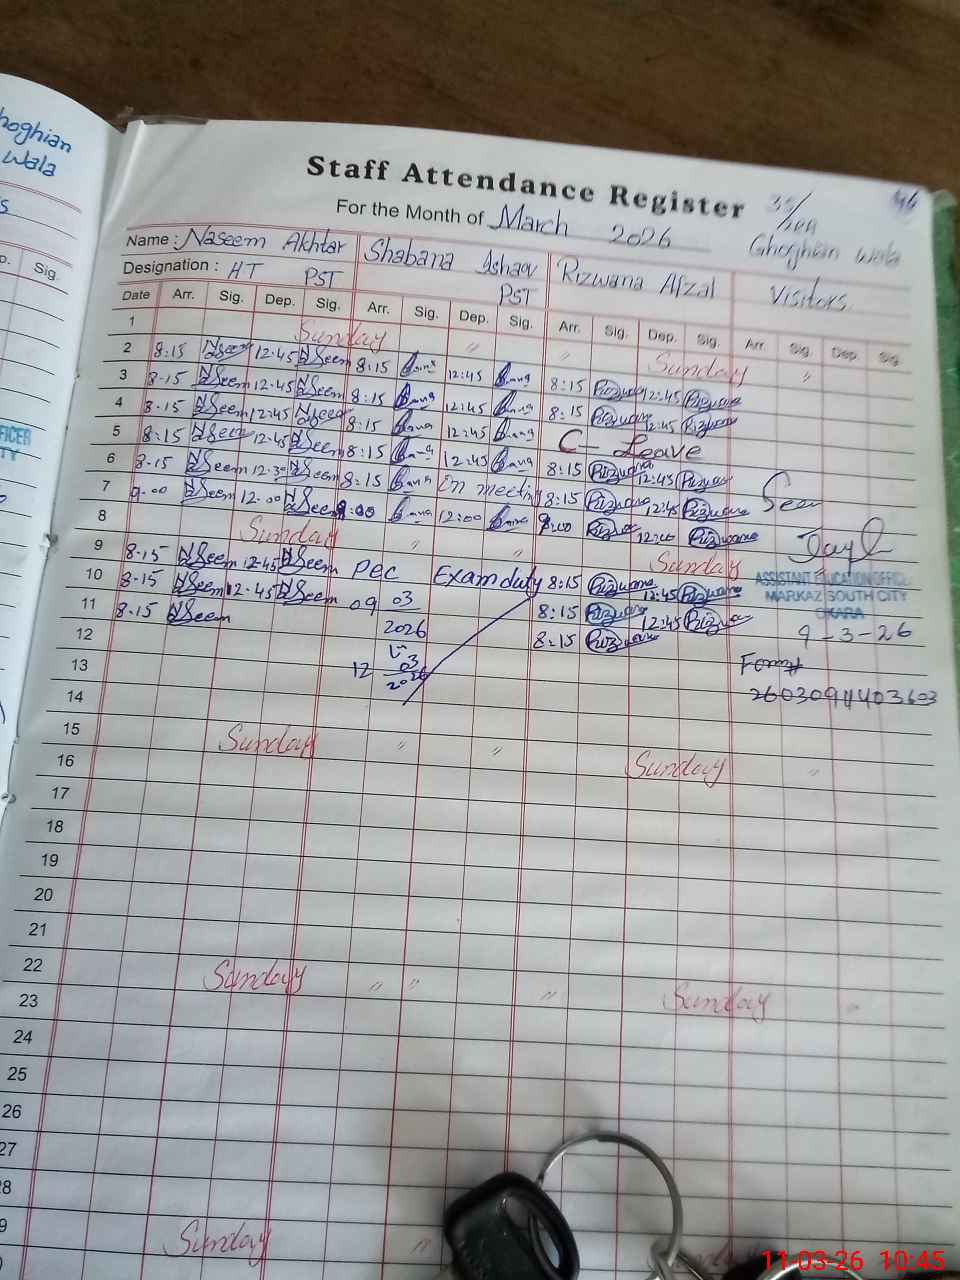 hoghian
Wala
Sig.
Staff Attendance Register
For the Month of March 2026
Ghoghian Wala
Name : Naseem Akhtar Shabana Ishaq Rizwana Afzal Visitors
Designation : HT PST PST
Date Arr. Sig. Dep. Sig. Arr. Sig. Dep. Sig. Arr. Sig. Dep. Sig. Arr. Sig. Dep. Sig.
1 Sunday " " Sunday "
2 8:15 NSeem 12:45 NSeem 8:15 12:45 8:15 Rizwana 12:45 Rizwana
3 8-15 NSeem 12:45 NSeem 8:15 12:45 8:15 Rizwana 12:45 Rizwana
4 8-15 NSeem 12:45 NSeem 8:15 12:45 C- Leave
5 8:15 NSeem 12:45 NSeem 8:15 12:45 8:15 Rizwana 12:45 Rizwana
6 8-15 NSeem 12-30 NSeem 8:15 On meeting 8:15 Rizwana 12:45 Rizwana
7 9-00 NSeem 12-00 NSeem 9:00 12:00 9:00 Rizwana 12:00 Rizwana
8 Sunday " " Sunday "
9 8-15 NSeem 12-45 NSeem PEC Exam duty 8:15 Rizwana 12:45 Rizwana
10 8-15 NSeem 12-45 NSeem 09 03 8:15 Rizwana 12:45 Rizwana
11 8-15 NSeem 2026 8:15 Rizwana
12
13 12 03
2026
14
15 Sunday " " Sunday "
16
17
18
19
20
21
22 Sunday " " " Sunday "
23
24
25
26
27
28
29 Sunday "
Seen
ASSISTANT EDUCATION OFFICER
MARKAZ SOUTH CITY
OKARA
9-3-26
11-03-26 10:45